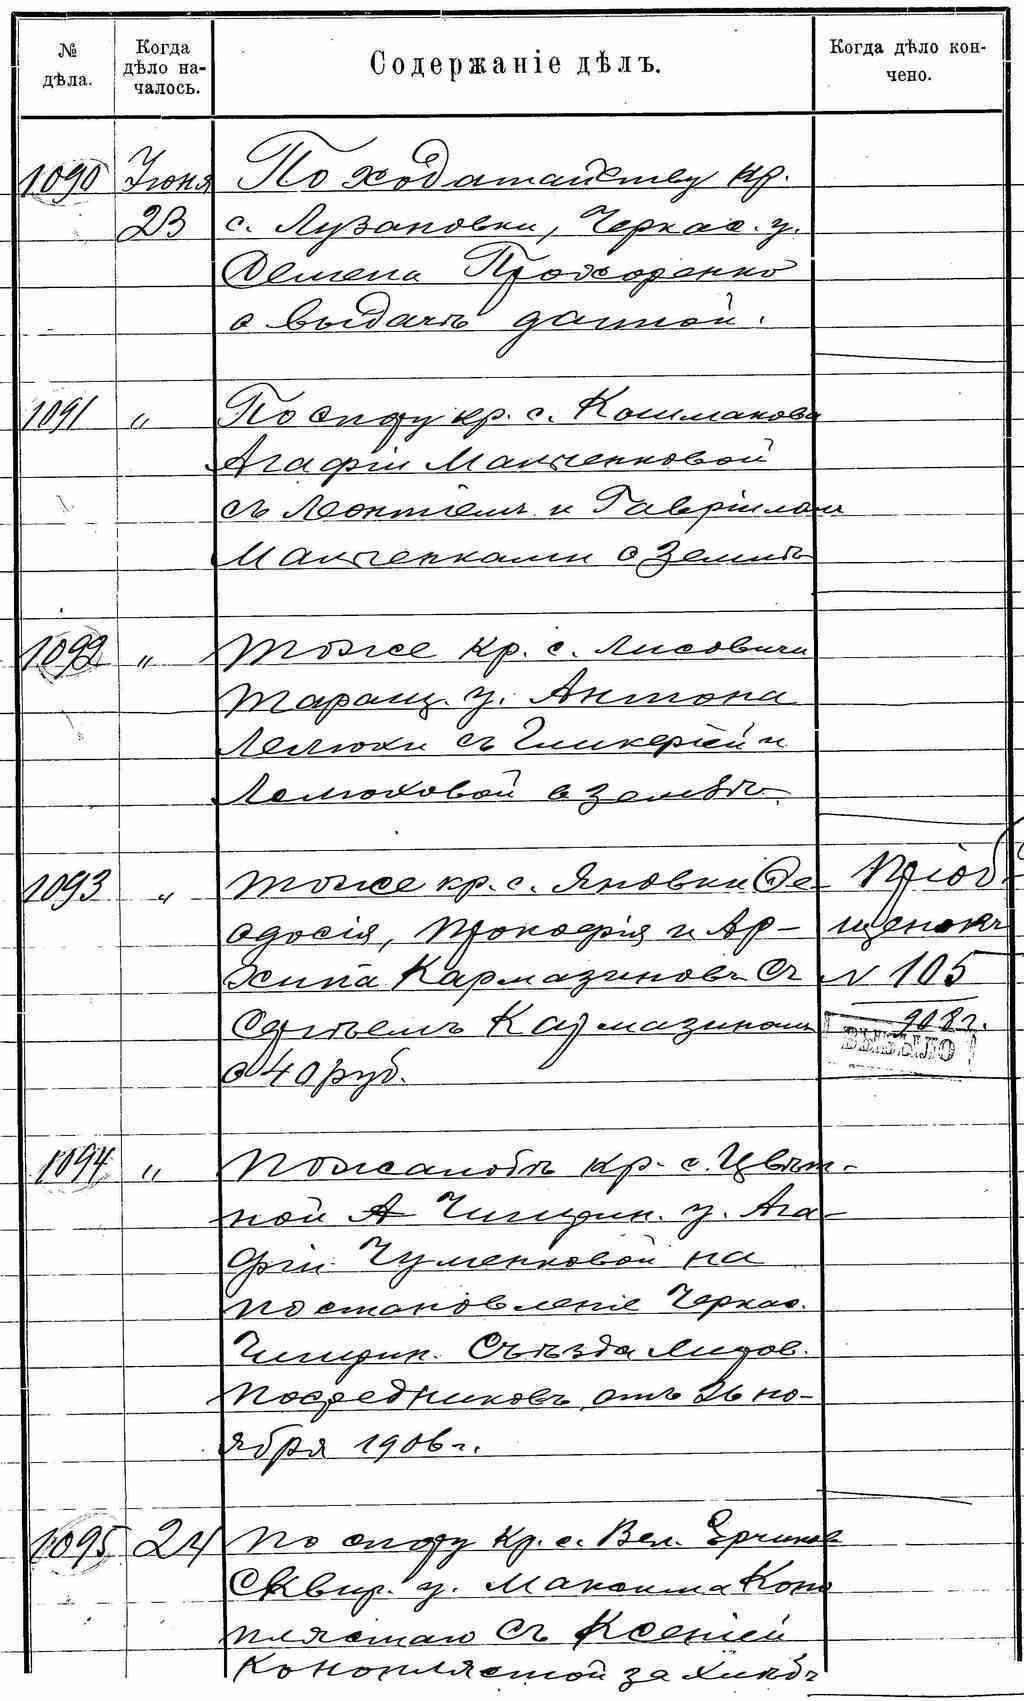 № дѣла.
Когда дѣло началось.
Содержаніе дѣлъ.
Когда дѣло кончено.
1090 Іюня По ходатайству кр.
23 с. Лузановки, Черкас. у.
Семена Прохоренко
о выдачѣ данной.
1091 „ По спору кр. с. Кошмакова
Агафіи Малченковой
съ Леонтіемъ и Гавріиломъ
Малченками о землѣ
1092 „ Тоже кр. с. Лисовичи
Таращ. у. Антона
Лелюхи съ Гликеріей и
Лелюховой о землѣ.
1093 „ Тоже кр. с. Яновки Ѳе- Пріоб-
одосія, Прокофія и Ар- щенокъ
хипа Кармазиновъ съ N 105
Сергѣемъ Кармазиномъ 908 г.
о 40 руб. ВЫБЫЛО
1094 „ По жалобѣ кр. с. Цвѣт-
ной А Чигирин. у. Ага-
фіи Чуменковой на
постановленіе Черкас.
Чигирин. Съѣзда Миров.
Посредниковъ отъ 26 но-
ября 1906 г.
1095 24 По спору кр. с. Вел. Ерчиков
Сквир. у. Максима Коно
плястаго съ Ксеніей
Коноплястой за хлѣбъ